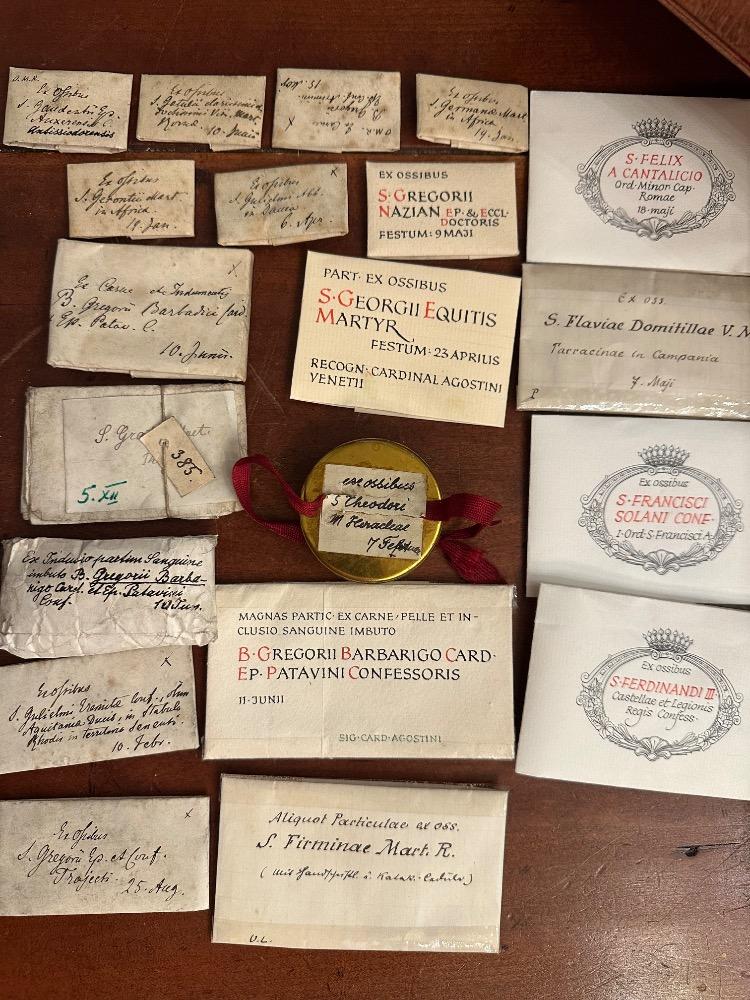 O.M.R.
Ex Ossibus
S. Gaudentii Ep.
Auxerentis C.
Antissiodorensis
Ex Ossibus
S. Getulii
Mart.
Romae 10. Junii
15. Nov.
X
Ex Ossibus
S. Germanae Mart.
in Africa
19. Jan.
Ex ossibus
S. Gerontii Mart
in Africa
19. Jan.
Ex ossibus
S. Gulielmi Abb.
in Dacia
6. Apr.
EX OSSIBUS
S·GREGORII
NAZIAN EP·&ECCL·
DOCTORIS
FESTUM: 9 MAJI
S·FELIX
A CANTALICIO
Ord·Minor Cap·
Romae
18·maji
X
Ex Carne et Indumentis
B. Gregorii Barbadici Card
Ep. Patav. C.
10. Junii.
PART· EX OSSIBUS
S·GEORGII EQUITIS
MARTYR
FESTUM: 23 APRILIS
RECOGN: CARDINAL AGOSTINI
VENETII
Ex oss.
S. Flaviae Domitillae V. M
Tarracinae in Campania
7. Maji
P
S. Gra
385.
5. XII
ex ossibus
S Theodori
M Heracleae
7
Ex ossibus
S·FRANCISCI
SOLANI CONF·
1·Ord·S·Francisci A·
Ex Indusio partim Sanguine
imbuto B. Gregorii Barba-
rigo Card. et Ep. Patavini
Conf.
MAGNAS PARTIC·EX CARNE, PELLE ET IN-
CLUSIO SANGUINE IMBUTO
B·GREGORII BARBARIGO CARD·
EP·PATAVINI CONFESSORIS
11·JUNII
SIG·CARD·AGOSTINI
X
Ex ossibus
S. Gulielmi Eremitae Conf., olim
Aquitaniae Ducis, in Stabulo
Rhodis in territorio Senensi.
10. Febr.
Ex ossibus
S·FERDINANDI III·
Castellae et Legionis
Regis Confess·
X
Ex Ossibus
S. Gregorii Ep. et Conf.
Trajecti.
25. Aug.
Aliquot Particulae ex oss.
S. Firminae Mart. R.
(mit Handschriftl. u. Katak.-Cedula)
U.L.